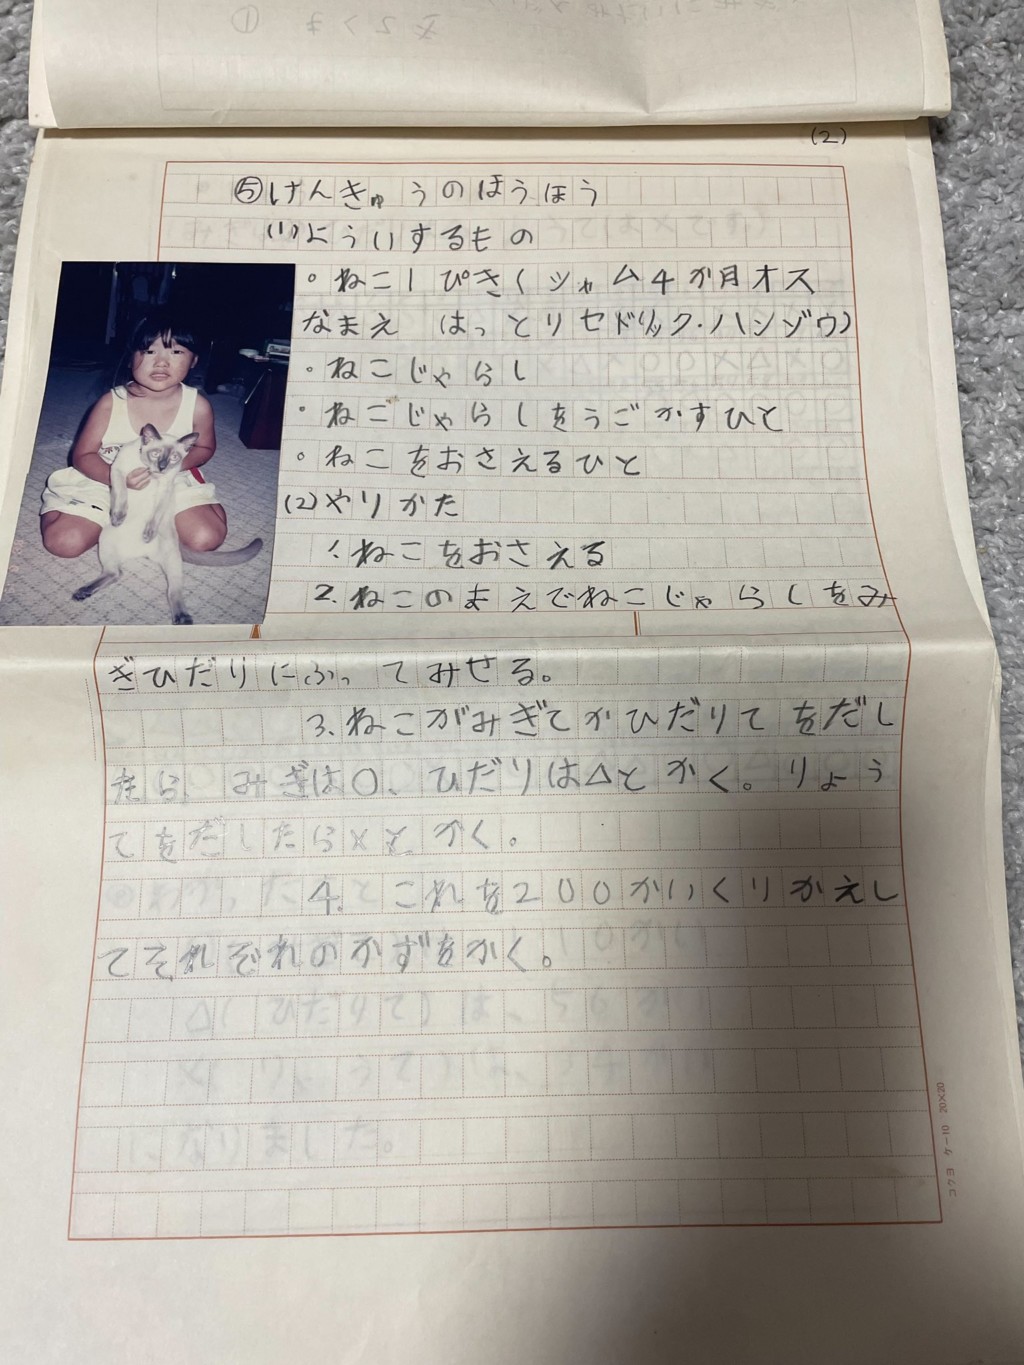 (2)
⑤けんきゅうのほうほう
(1)よういするもの
・ねこ1ぴき(シャム4か月オス
なまえ はっとりセドリック・ハンゾウ)
・ねこじゃらし
・ねこじゃらしをうごかすひと
・ねこをおさえるひと
(2)やりかた
1.ねこをおさえる
2.ねこのまえでねこじゃらしをみ
ぎひだりにふってみせる。
3.ねこがみぎてかひだりてをだし
たら、みぎは○、ひだりは△とかく。りょう
てをだしたら×とかく。
4.これを200かいくりかえし
てそれぞれのかずをかく。
コクヨ ケ-10 20×20